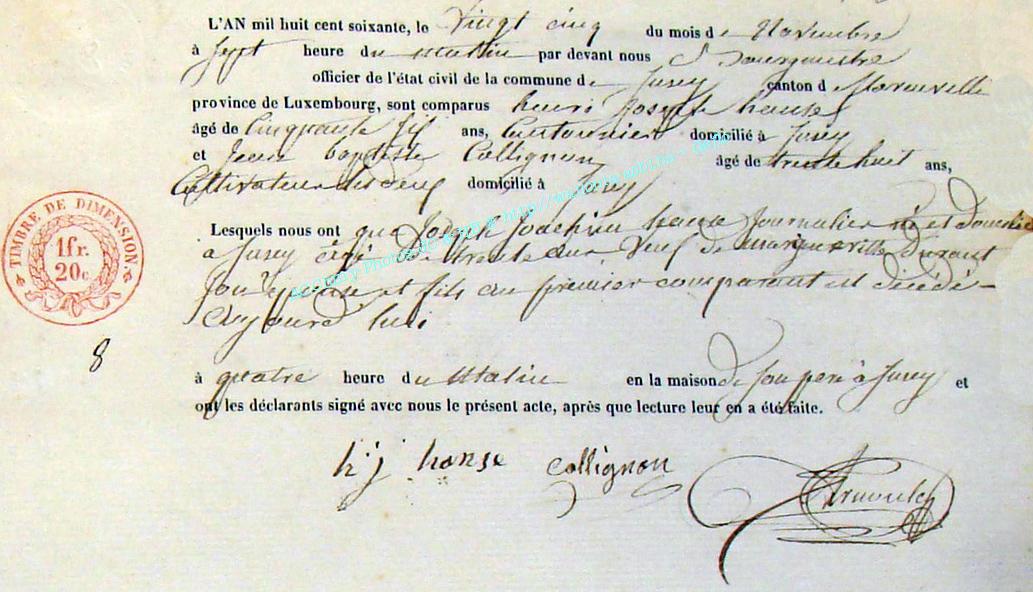 L'AN mil huit cent soixante, le Vingt cinq du mois de Novembre
à Sept heure du Matin par devant nous Bourgmestre
officier de l'état civil de la commune de Juzey canton de
province de Luxembourg, sont comparus henri Joseph hanse
âgé de Cinquante ans, Cantonnier domicilié à Juzey
et Jean baptiste Collignon âgé de trente huit ans,
Cultivateur domicilié à Juzey
Lesquels nous ont que Joseph Joachim hanse Journalier né et domicilié
à Juzey âgé de trente ans Veuf de durant
et fils du premier comparant est décédé
aujourd'hui
à quatre heure du Matin en la maison de son père à Juzey et
ont les déclarants signé avec nous le présent acte, après que lecture leur en a été faite.
h j hanse Collignon
TIMBRE DE DIMENSION
1fr.
20c.
8